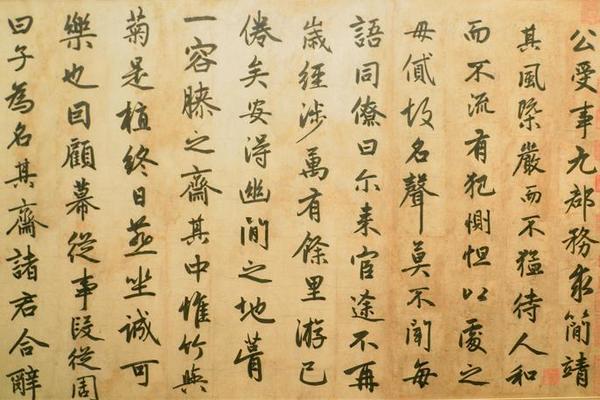 公受事九郡務求簡靖
其風槩嚴而不猛待人和
而不流有犯惻怛以處之
毋貳故名聲莫不聞每
語同僚曰尒来官途不再
歲經涉萬有餘里游已
倦矣安得幽閒之地葺
一容膝之齋其中惟竹與
菊是植終日燕坐誠可
樂也回顧幕從事段從周
曰子為名其齋諸君合辭